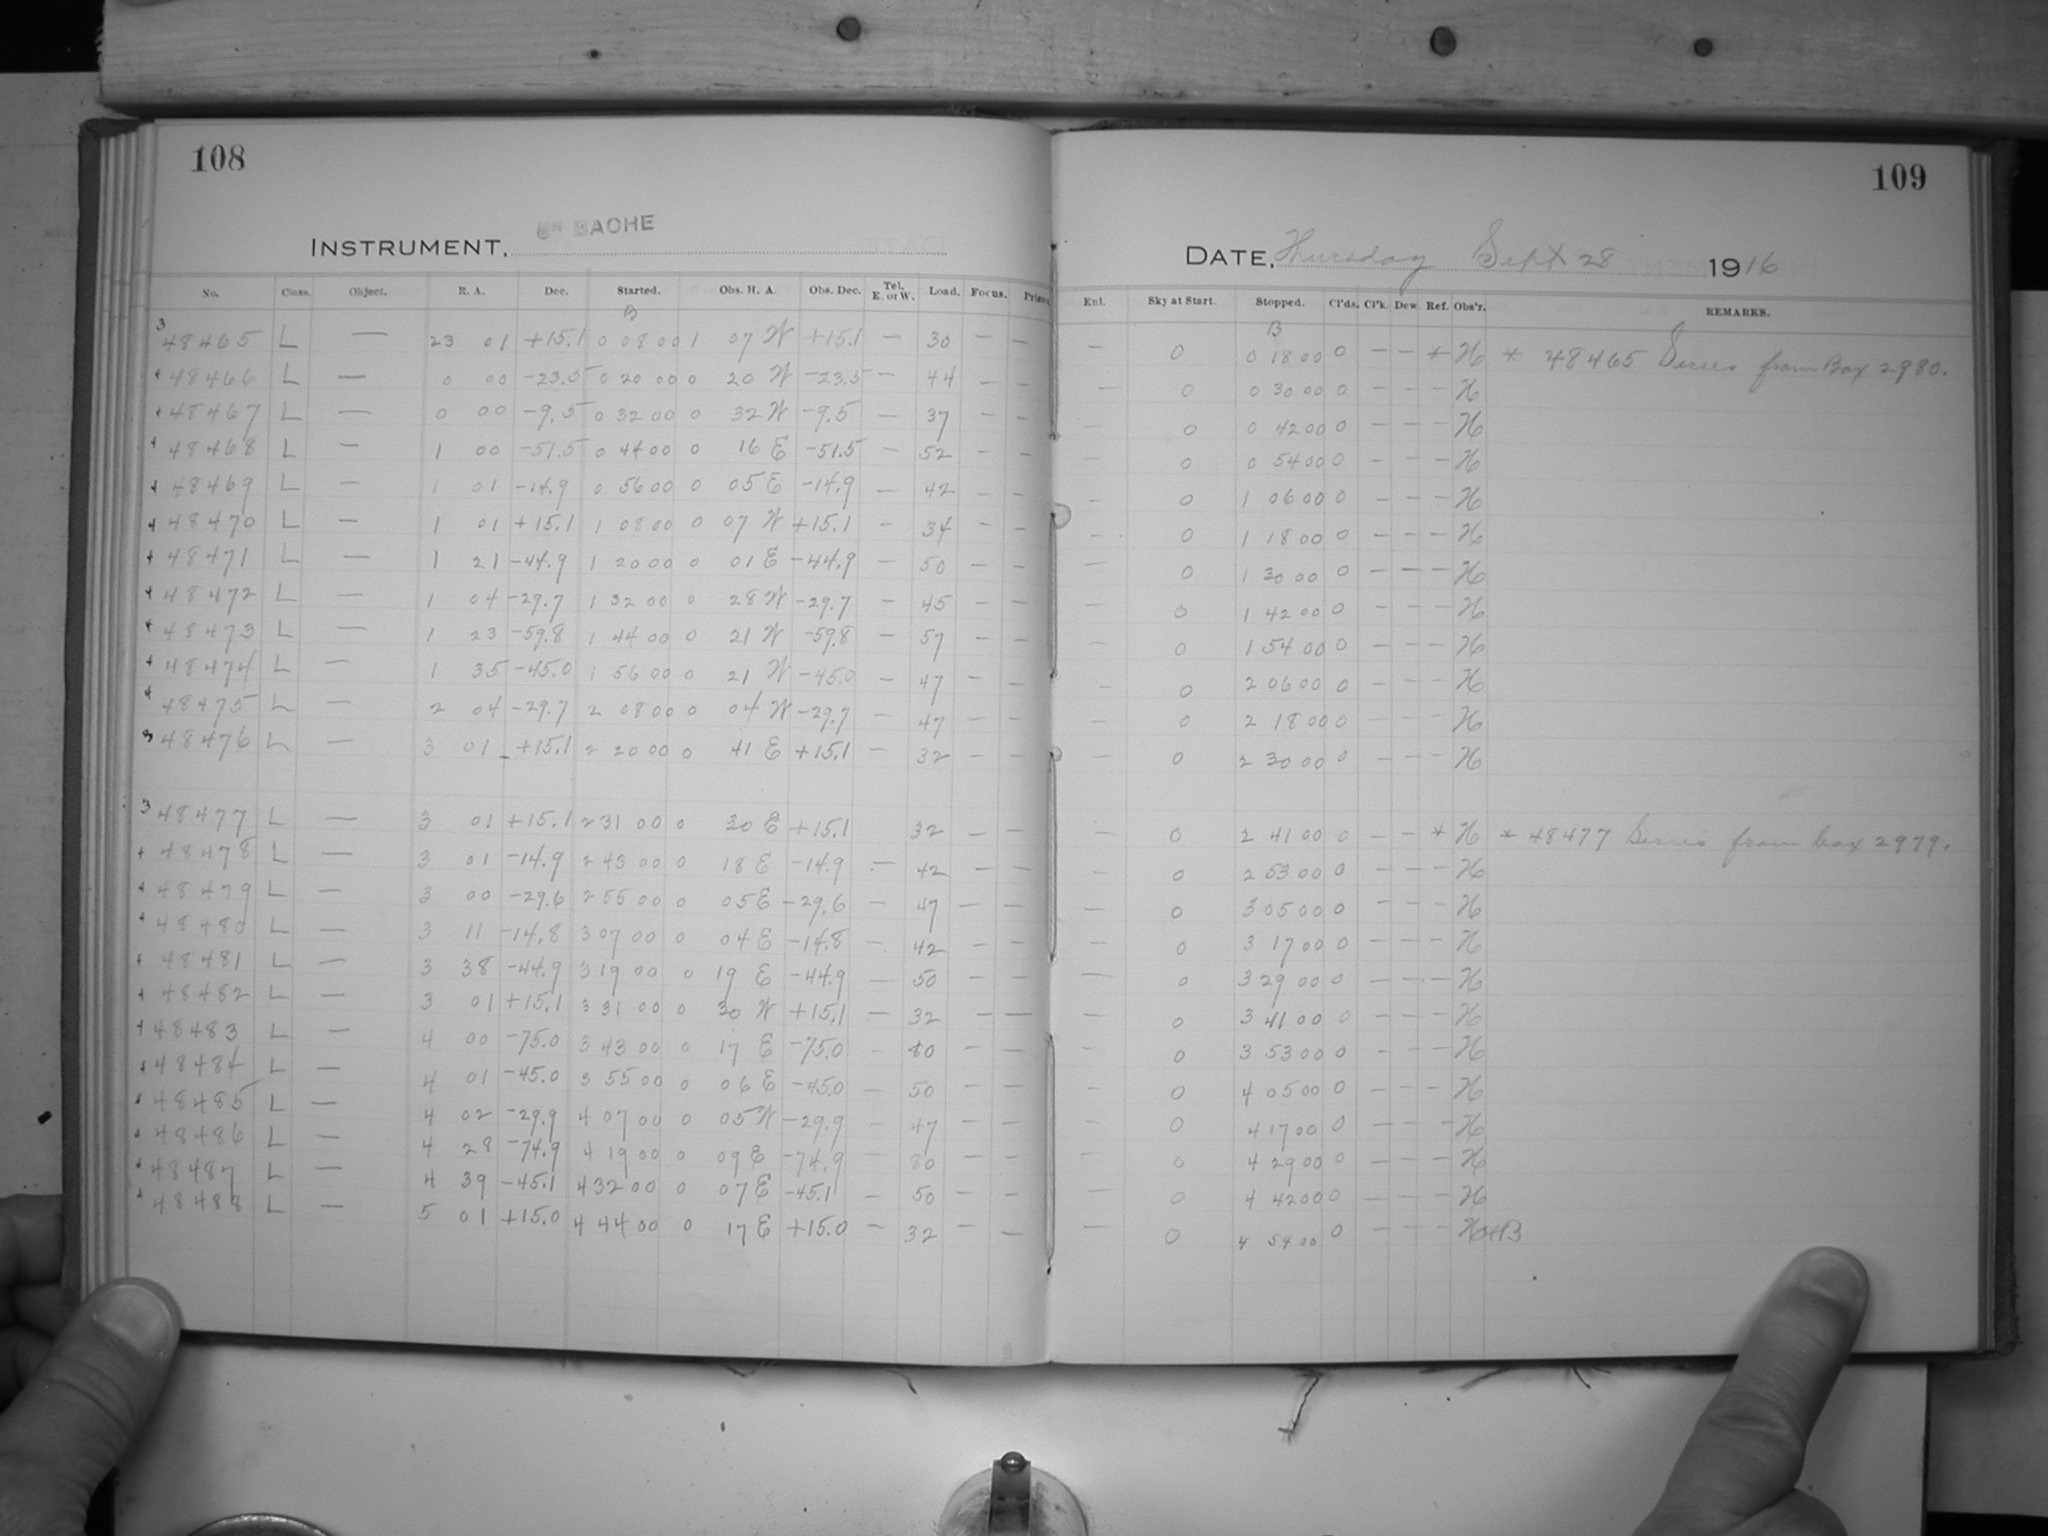 108
INSTRUMENT, 8IN BACHE
No. Class. Object. R. A. Dec. Started. Obs. H. A. Obs. Dec. Tel. E. or W. Load. Focus.
B
3 48465 L — 23 01 +15.1 0 08 00 1 07 W +15.1 — 30 — —
4 48466 L — 0 00 -23.5 0 20 00 0 20 W -23.5 — 44 — —
4 48467 L — 0 00 -9.5 0 32 00 0 32 W -9.5 — 37 — —
4 48468 L — 1 00 -51.5 0 44 00 0 16 E -51.5 — 52 — —
4 48469 L — 1 01 -14.9 0 56 00 0 05 E -14.9 — 42 — —
4 48470 L — 1 01 +15.1 1 08 00 0 07 W +15.1 — 34 — —
4 48471 L — 1 21 -44.9 1 20 00 0 01 E -44.9 — 50 — —
4 48472 L — 1 04 -29.7 1 32 00 0 28 W -29.7 — 45 — —
4 48473 L — 1 23 -59.8 1 44 00 0 21 W -59.8 — 57 — —
4 48474 L — 1 35 -45.0 1 56 00 0 21 W -45.0 — 47 — —
4 48475 L — 2 04 -29.7 2 08 00 0 04 W -29.7 — 47 — —
3 48476 L — 3 01 +15.1 2 20 00 0 41 E +15.1 — 32 — —
3 48477 L — 3 01 +15.1 2 31 00 0 30 E +15.1 32 — —
4 48478 L — 3 01 -14.9 2 43 00 0 18 E -14.9 — 42 — —
4 48479 L — 3 00 -29.6 2 55 00 0 05 E -29.6 — 47 — —
4 48480 L — 3 11 -14.8 3 07 00 0 04 E -14.8 — 42 — —
4 48481 L — 3 38 -44.9 3 19 00 0 19 E -44.9 — 50 — —
4 48482 L — 3 01 +15.1 3 31 00 0 30 W +15.1 — 32 — —
4 48483 L — 4 00 -75.0 3 43 00 0 17 E -75.0 — 80 — —
4 48484 L — 4 01 -45.0 3 55 00 0 06 E -45.0 — 50 — —
4 48485 L — 4 02 -29.9 4 07 00 0 05 W -29.9 — 47 — —
4 48486 L — 4 28 -74.9 4 19 00 0 09 E -74.9 — 80 — —
4 48487 L — 4 39 -45.1 4 32 00 0 07 E -45.1 — 50 — —
4 48488 L — 5 01 +15.0 4 44 00 0 17 E +15.0 — 32 — —
109
DATE, Thursday Sept 28 1916
Enl. Sky at Start. Stopped. Cl'ds. Cl'k. Dew. Ref. Obs'r. REMARKS.
B
— 0 0 18 00 0 — — * H * 48465 Series from Box 2980.
— 0 0 30 00 0 — — — H
— 0 0 42 00 0 — — — H
— 0 0 54 00 0 — — — H
— 0 1 06 00 0 — — — H
— 0 1 18 00 0 — — — H
— 0 1 30 00 0 — — — H
— 0 1 42 00 0 — — — H
— 0 1 54 00 0 — — — H
— 0 2 06 00 0 — — — H
— 0 2 18 00 0 — — — H
— 0 2 30 00 0 — — — H
— 0 2 41 00 0 — — * H * 48477 Series from box 2979.
— 0 2 53 00 0 — — — H
— 0 3 05 00 0 — — — H
— 0 3 17 00 0 — — — H
— 0 3 29 00 0 — — — H
— 0 3 41 00 0 — — — H
— 0 3 53 00 0 — — — H
— 0 4 05 00 0 — — — H
— 0 4 17 00 0 — — — H
— 0 4 29 00 0 — — — H
— 0 4 42 00 0 — — — H
— 0 4 54 00 0 — — — H+B